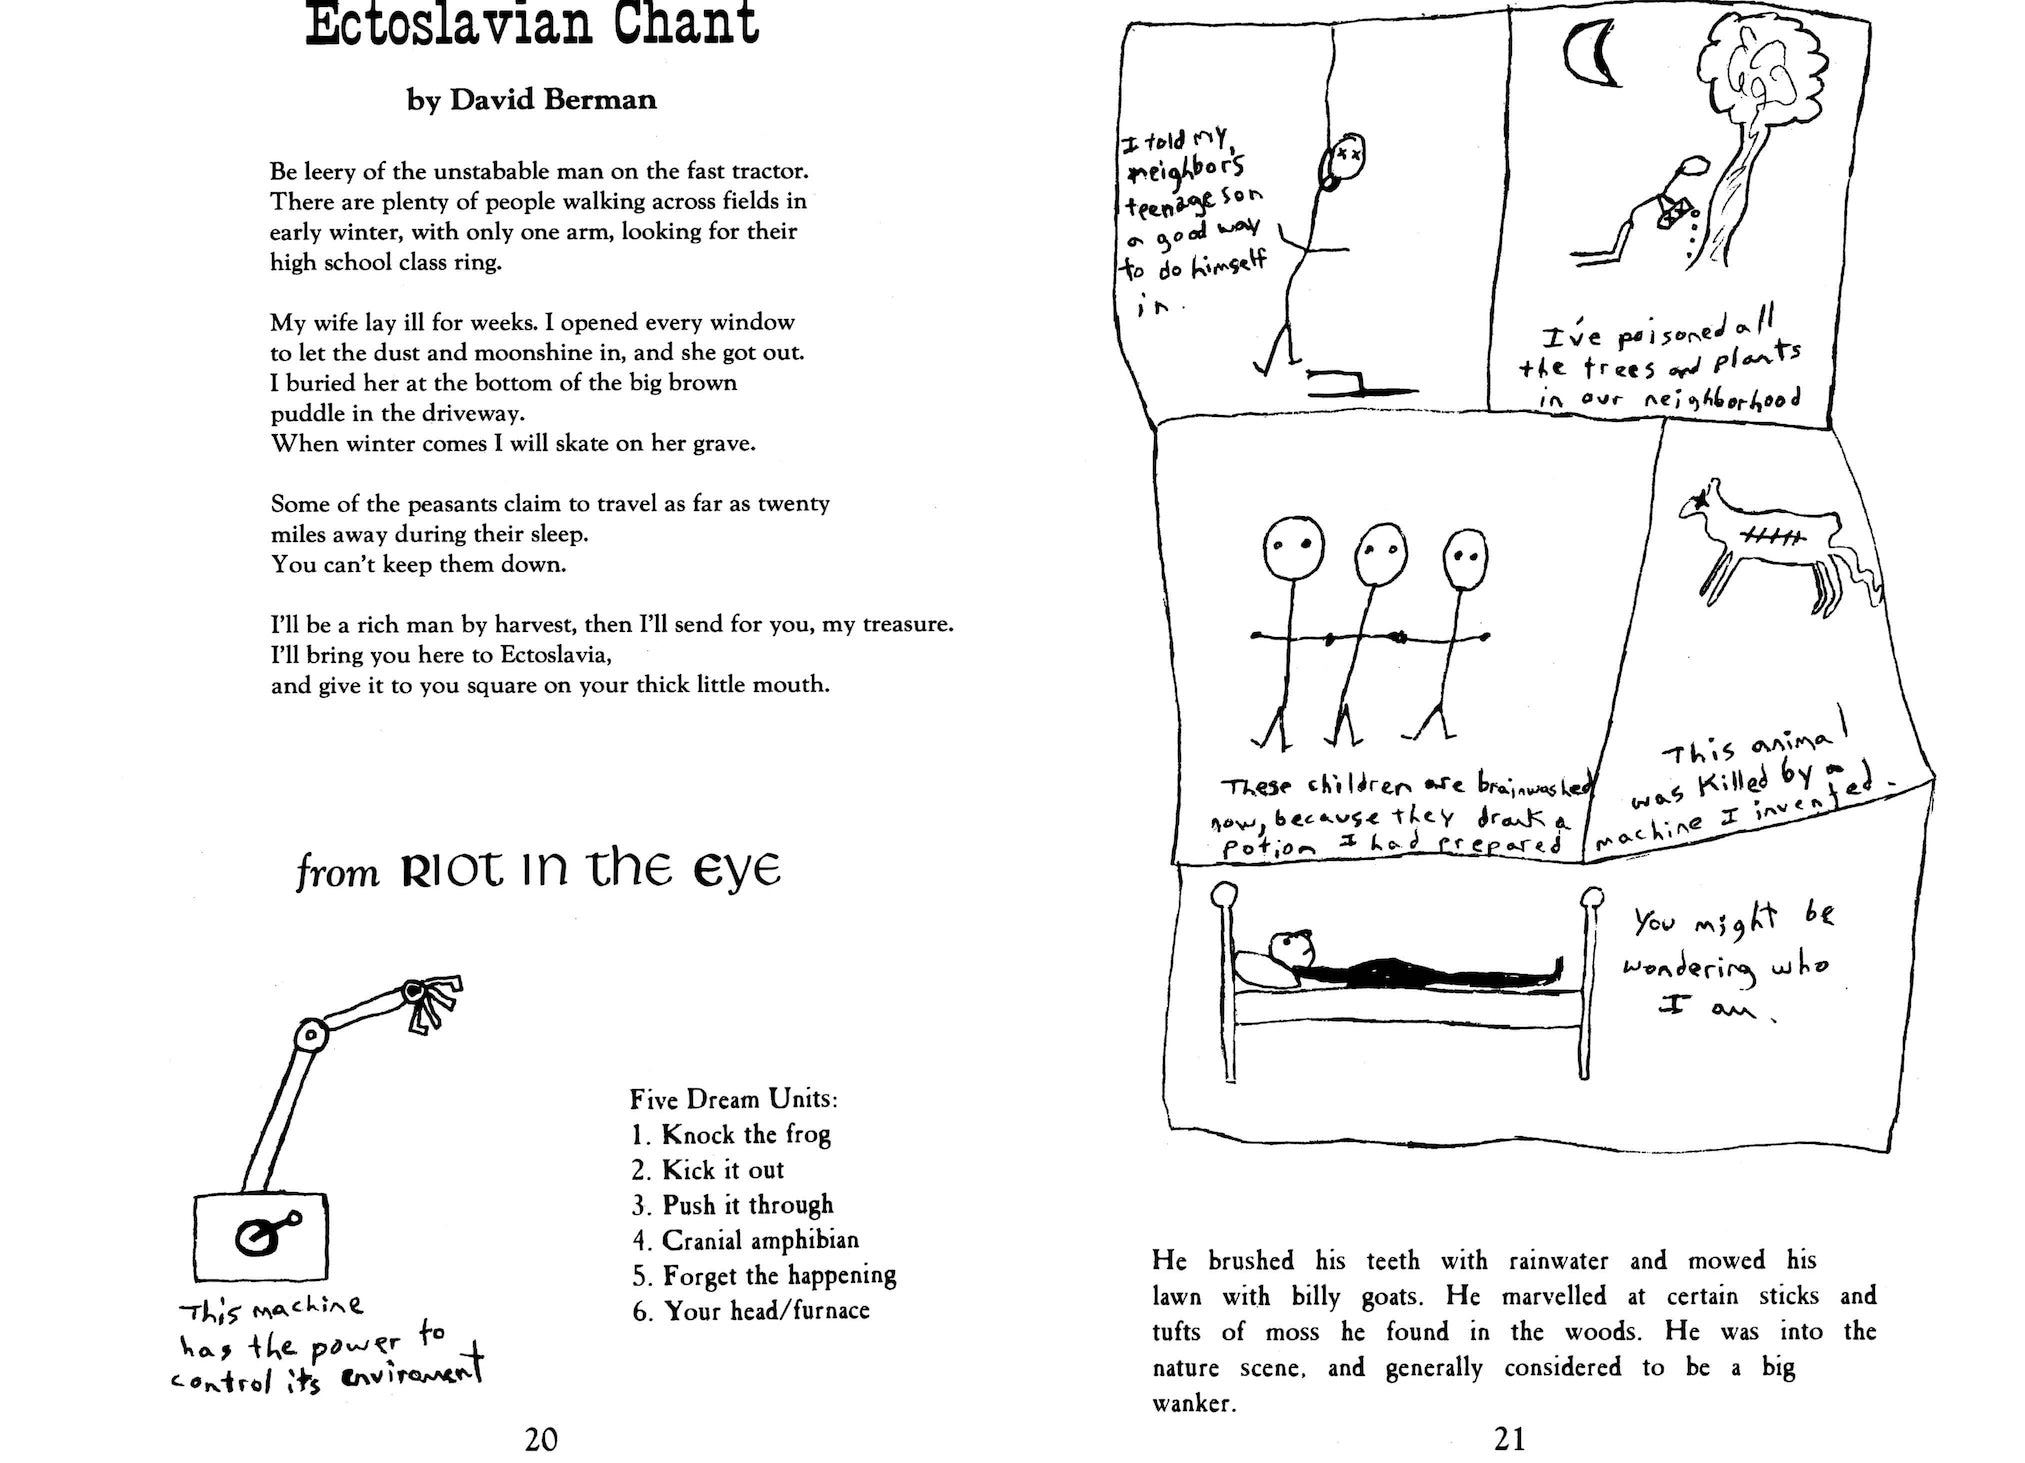 Ectoslavian Chant
by David Berman
Be leery of the unstabable man on the fast tractor.
There are plenty of people walking across fields in
early winter, with only one arm, looking for their
high school class ring.
My wife lay ill for weeks. I opened every window
to let the dust and moonshine in, and she got out.
I buried her at the bottom of the big brown
puddle in the driveway.
When winter comes I will skate on her grave.
Some of the peasants claim to travel as far as twenty
miles away during their sleep.
You can't keep them down.
I'll be a rich man by harvest, then I'll send for you, my treasure.
I'll bring you here to Ectoslavia,
and give it to you square on your thick little mouth.
from RIOT IN THE EYE
This machine
has the power to
control its enviroment
Five Dream Units:
1. Knock the frog
2. Kick it out
3. Push it through
4. Cranial amphibian
5. Forget the happening
6. Your head/furnace
20
I told my
neighbor's
teenage son
a good way
to do himself
in.
I've poisoned all
the trees and plants
in our neighborhood
These children are brainwashed
now, because they drank a
potion I had prepared
This animal
was killed by a
machine I invented.
You might be
wondering who
I am.
He brushed his teeth with rainwater and mowed his
lawn with billy goats. He marvelled at certain sticks and
tufts of moss he found in the woods. He was into the
nature scene, and generally considered to be a big
wanker.
21